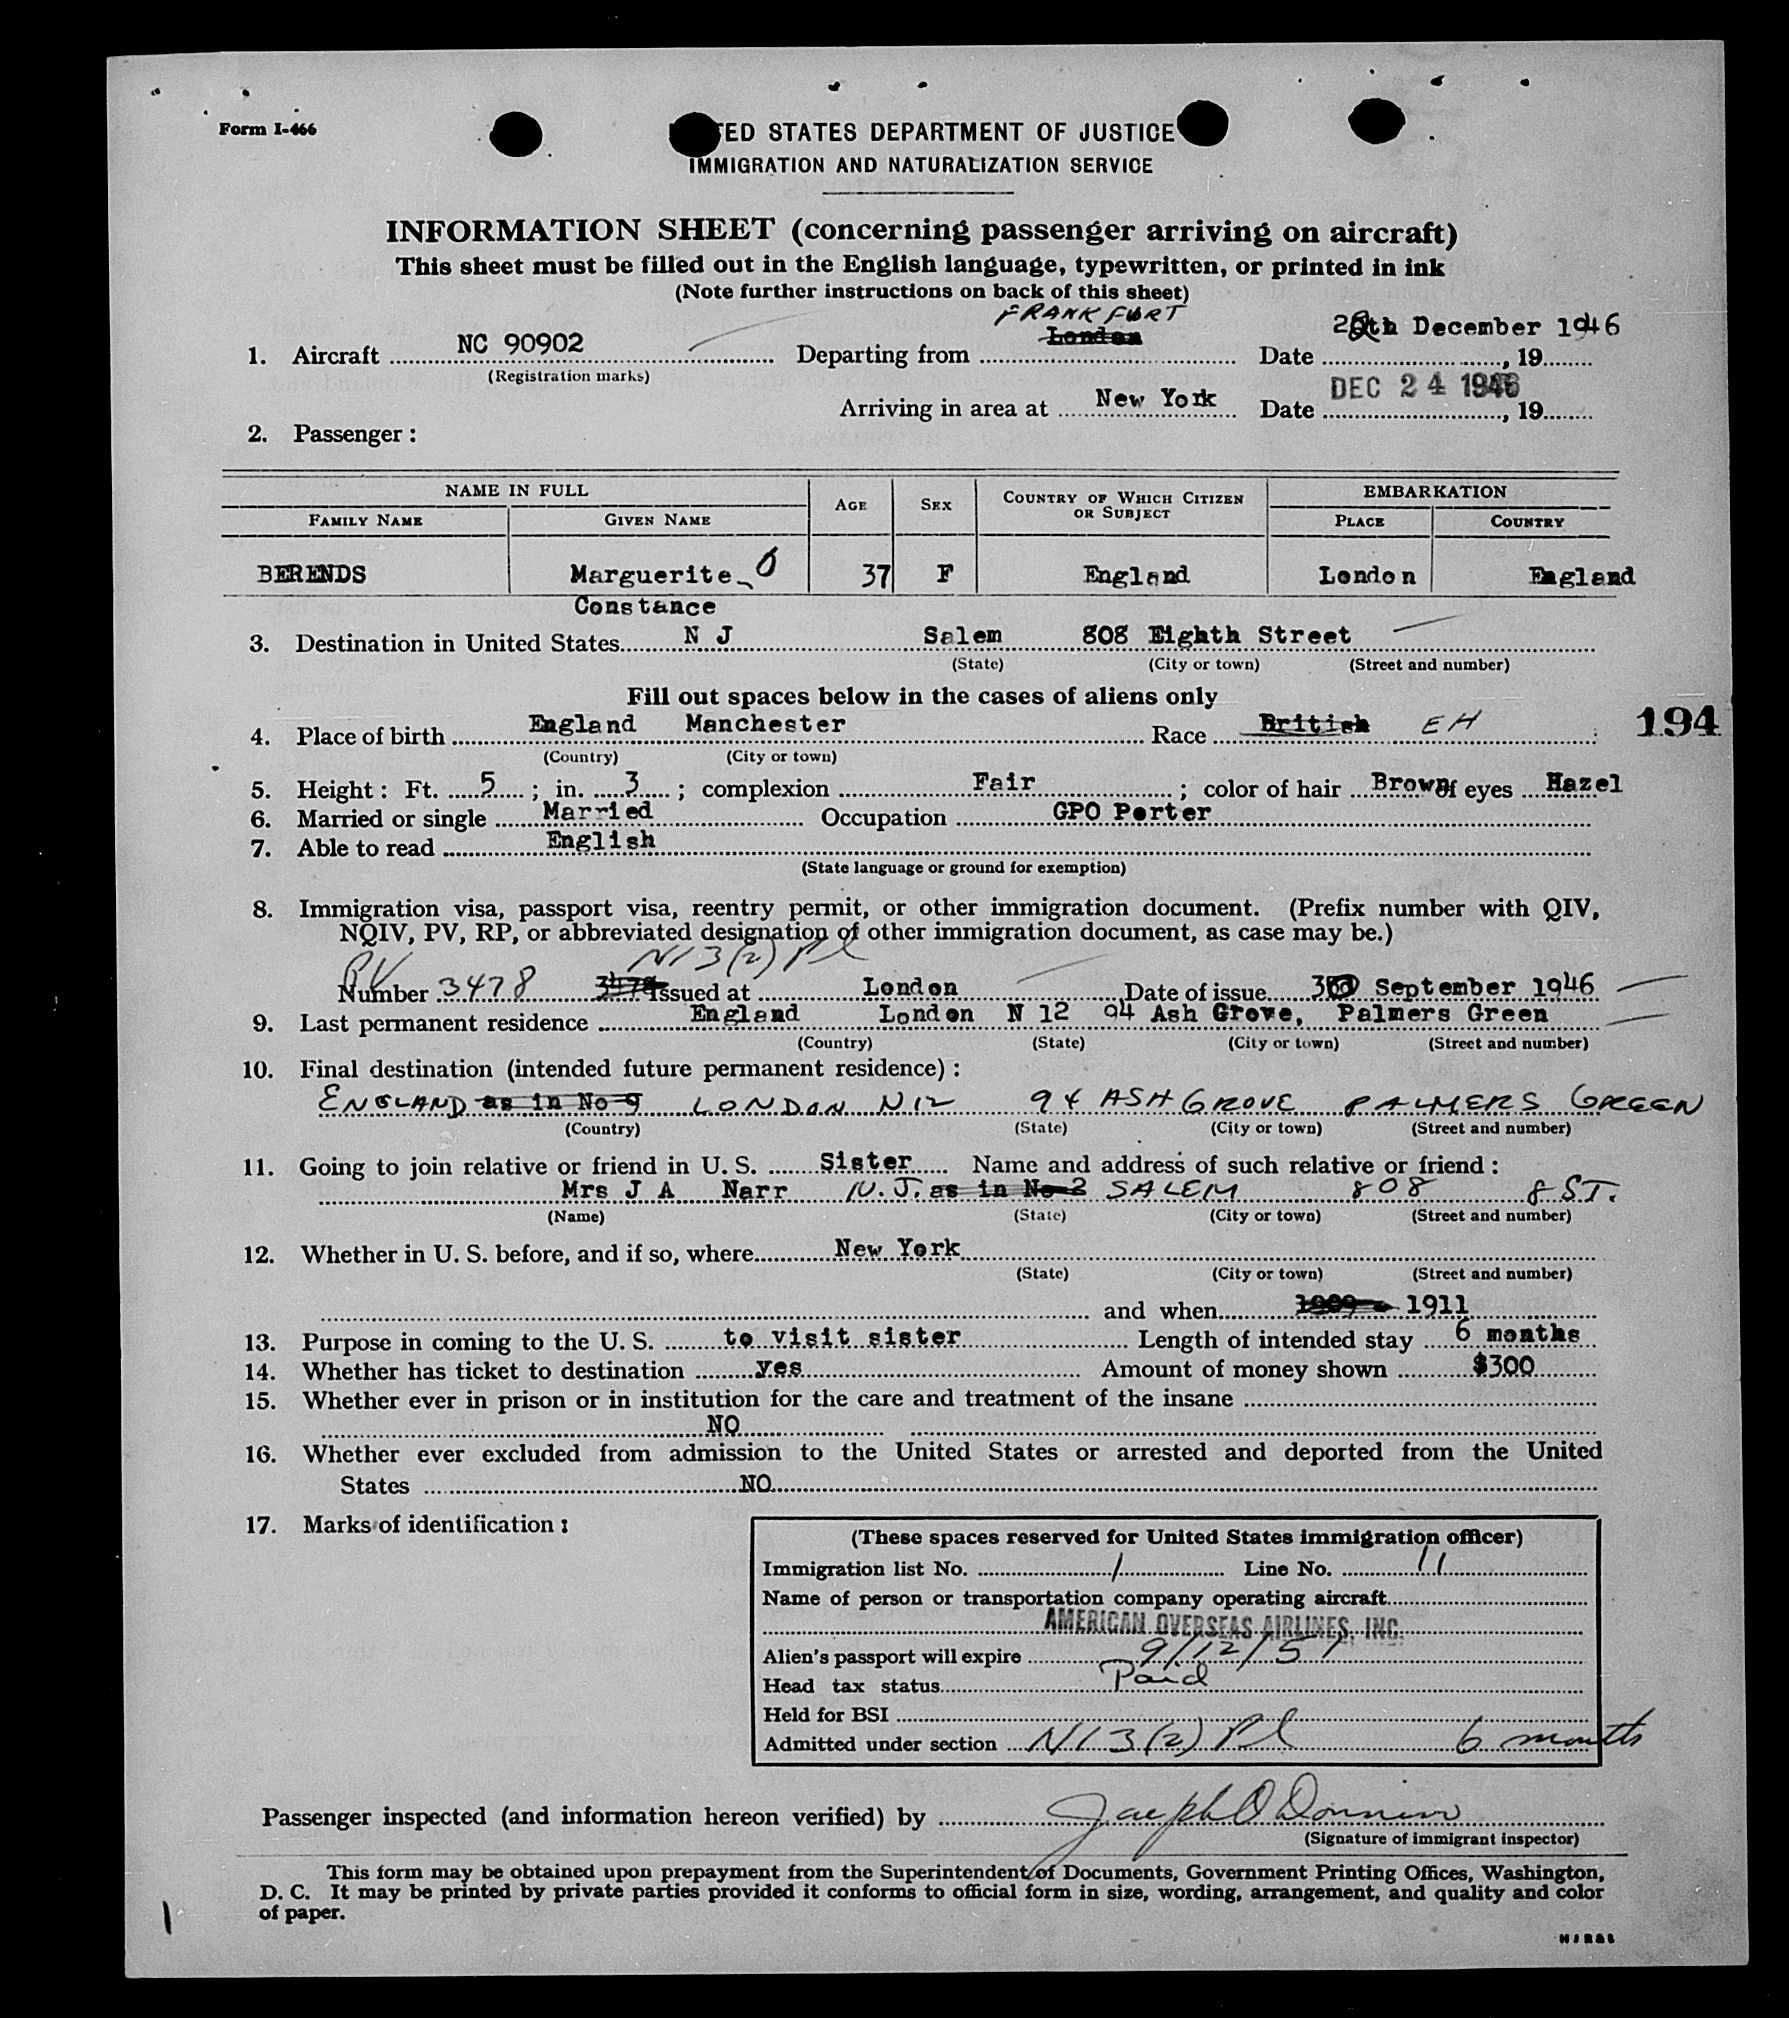 Form I-466
UNITED STATES DEPARTMENT OF JUSTICE
IMMIGRATION AND NATURALIZATION SERVICE
INFORMATION SHEET (concerning passenger arriving on aircraft)
This sheet must be filled out in the English language, typewritten, or printed in ink
(Note further instructions on back of this sheet)
FRANKFURT
1. Aircraft NC 90902 Departing from London Date December 1946, 19
(Registration marks)
Arriving in area at New York Date DEC 24 1946, 19
2. Passenger:
NAME IN FULL AGE SEX COUNTRY OF WHICH CITIZEN OR SUBJECT EMBARKATION
FAMILY NAME GIVEN NAME PLACE COUNTRY
BERENDS Marguerite 37 F England London England
Constance
3. Destination in United States N J Salem 808 Eighth Street
(State) (City or town) (Street and number)
Fill out spaces below in the cases of aliens only
4. Place of birth England Manchester Race British EH
194
(Country) (City or town)
5. Height: Ft. 5; in. 3; complexion Fair; color of hair Brown of eyes Hazel
6. Married or single Married Occupation GPO Porter
7. Able to read English
(State language or ground for exemption)
8. Immigration visa, passport visa, reentry permit, or other immigration document. (Prefix number with QIV,
NQIV, PV, RP, or abbreviated designation of other immigration document, as case may be.)
PV N13(2)Pl
Number 3478 3478 Issued at London Date of issue September 1946
9. Last permanent residence England London N 12 94 Ash Grove, Palmers Green
(Country) (State) (City or town) (Street and number)
10. Final destination (intended future permanent residence):
ENGLAND as in No 9 LONDON N12 94 ASH GROVE PALMERS GREEN
(Country) (State) (City or town) (Street and number)
11. Going to join relative or friend in U. S. Sister Name and address of such relative or friend:
Mrs J A Narr N.J. as in No 3 SALEM 808 8 ST.
(Name) (State) (City or town) (Street and number)
12. Whether in U. S. before, and if so, where New York
(State) (City or town) (Street and number)
and when 1909 1911
13. Purpose in coming to the U. S. to visit sister Length of intended stay 6 months
14. Whether has ticket to destination yes Amount of money shown $300
15. Whether ever in prison or in institution for the care and treatment of the insane
NO
16. Whether ever excluded from admission to the United States or arrested and deported from the United
States NO
17. Marks of identification:
(These spaces reserved for United States immigration officer)
Immigration list No. 1 Line No. 11
Name of person or transportation company operating aircraft
AMERICAN OVERSEAS AIRLINES, INC.
Alien's passport will expire 9/12/51
Head tax status Paid
Held for BSI
Admitted under section N13(2)Pl 6 months
Passenger inspected (and information hereon verified) by Joseph O'Donnell
(Signature of immigrant inspector)
This form may be obtained upon prepayment from the Superintendent of Documents, Government Printing Offices, Washington,
D. C. It may be printed by private parties provided it conforms to official form in size, wording, arrangement, and quality and color
of paper.